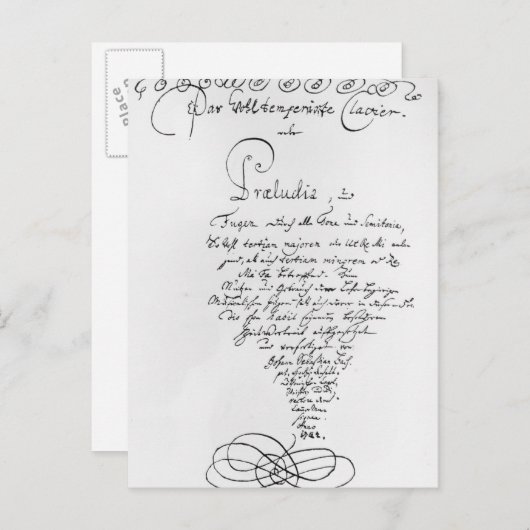 Place
Das Wohltemperirte Clavier.
oder
Præludia, und
Fugen durch alle Tone und Semitonia,
So wohl tertiam majorem oder Ut Re Mi anlan-
gend, als auch tertiam minorem oder Re
Mi Fa betreffend. Zum
Nutzen und Gebrauch der Lehr-begierigen
Musicalischen Jugend, als auch derer in diesem stu-
dio schon habil seyenden besonderem
Zeitvertreib auffgesetzet
und verfertiget von
Johann Sebastian Bach.
p. t: Hochfürstlich
Capel-
Meistern und Di-
rectore derer
Cammer
Anno
1722.